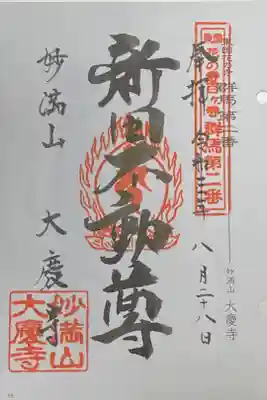 東国花の寺 群馬第二番
奉拝 令和三年 八月二十八日
新田不動尊
妙満山 大慶寺
妙満山 大慶寺
妙満山
大慶寺